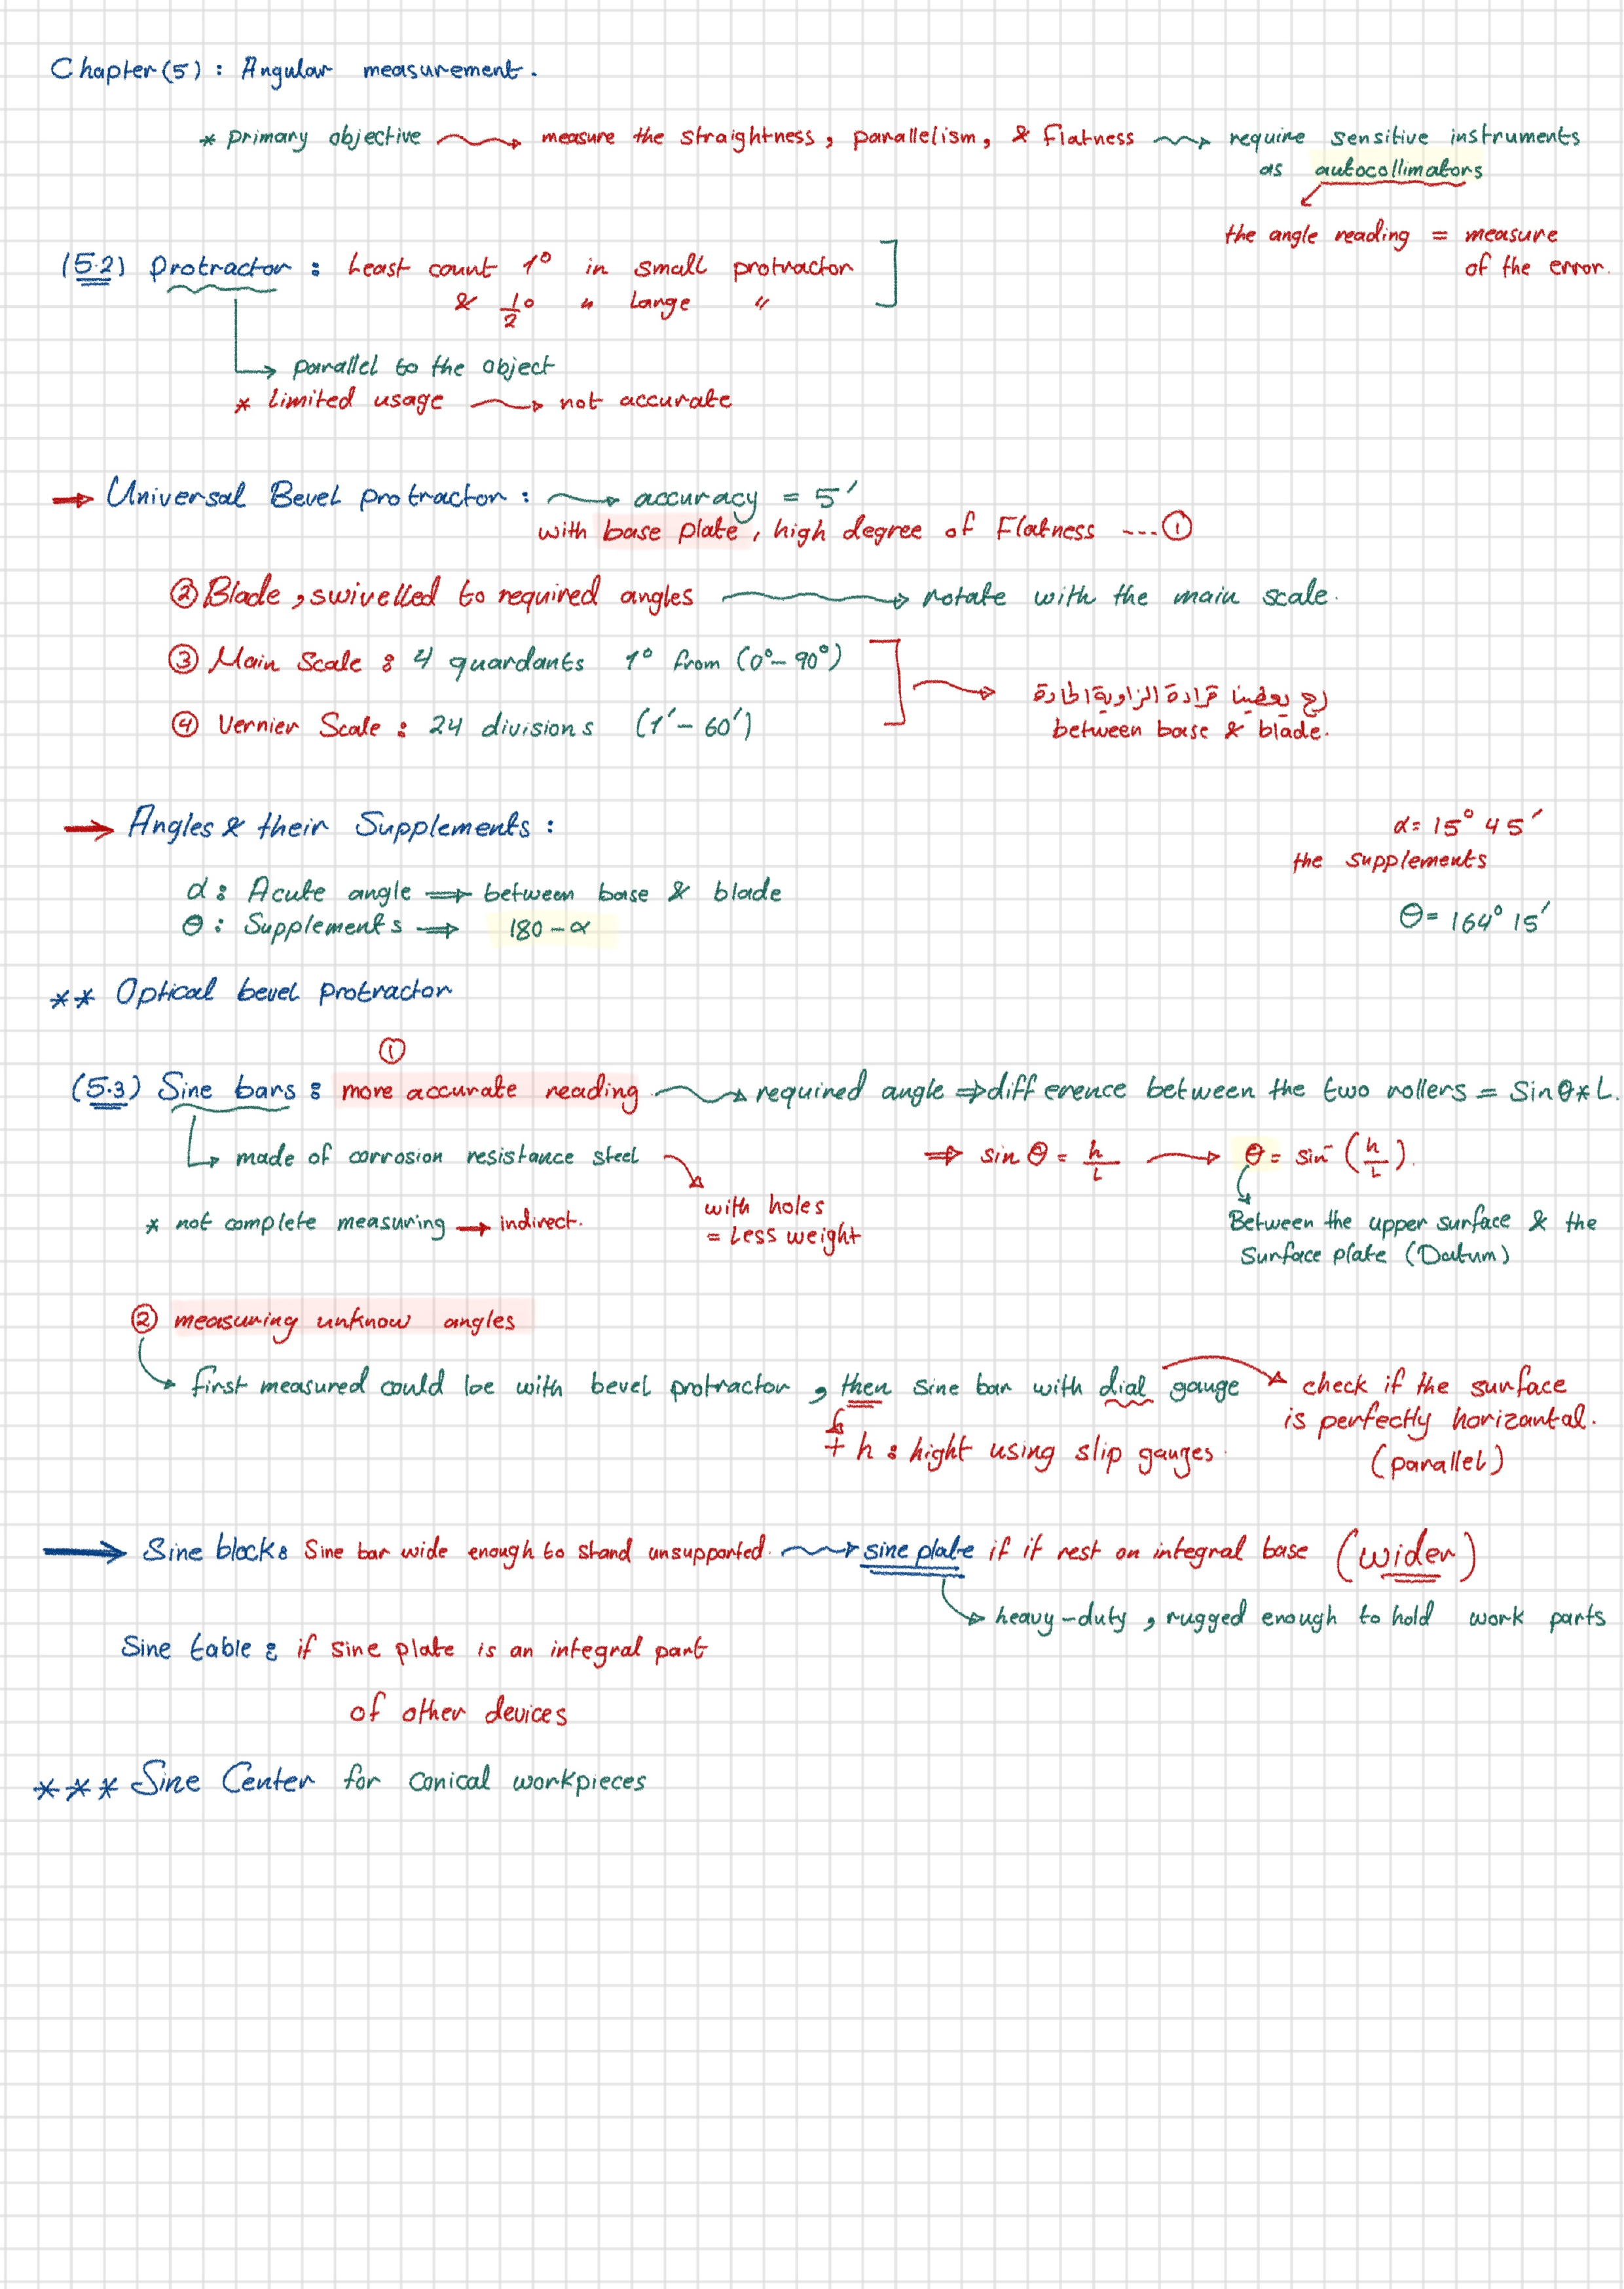 Chapter(5) : Angular measurement.
* primary objective → measure the straightness, parallelism, & flatness → require sensitive instruments
as autocollimators
the angle reading = measure
of the error.
(5.2) Protractor : Least count 1° in small protractor
& 1/2° " Large "
→ parallel to the object
* limited usage → not accurate
→ Universal Bevel protractor : → accuracy = 5′
with base plate, high degree of Flatness ---- ①
② Blade, swivelled to required angles → rotate with the main scale.
③ Main Scale : 4 quardants 1° from (0°-90°)
④ Vernier Scale : 24 divisions (1′-60′)
→ رح يعطينا قراءة الزاوية الحادة
between base & blade.
→ Angles & their Supplements :
α = 15° 45′
the supplements
α : Acute angle ⇒ between base & blade
θ : Supplements ⇒ 180 - α
θ = 164° 15′
** Optical bevel protractor
①
(5.3) Sine bars : more accurate reading → required angle ⇒ difference between the two rollers = Sinθ * L.
→ made of corrosion resistance steel
⇒ sin θ = h/L → θ = sin⁻ (h/L).
with holes
= Less weight
* not complete measuring → indirect.
Between the upper surface & the
Surface plate (Datum)
② measuring unknow angles
→ first measured could be with bevel protractor, then sine bar with dial gauge → check if the surface
is perfectly horizantal.
(parallel)
+ h : hight using slip gauges.
→ Sine block : Sine bar wide enough to stand unsupported. → sine plate if it rest on integral base (wider)
→ heavy-duty, rugged enough to hold work parts
Sine table : if sine plate is an integral part
of other devices
*** Sine Center for conical workpieces